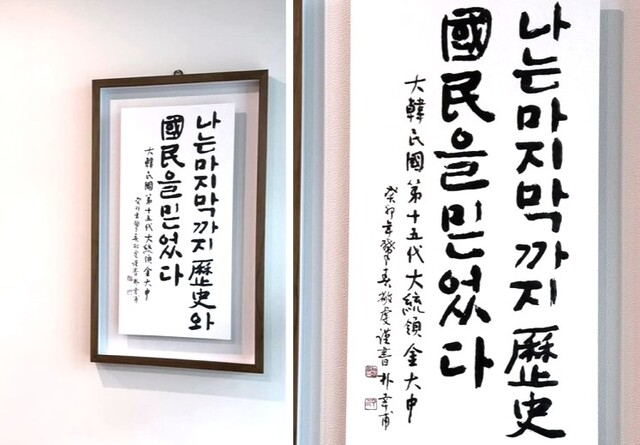 나는마지막까지 歷史와
國民을믿었다
大韓民國 第十五代大統領 金大中
癸卯年 謹書 朴幸甫
나는마지막까지 歷史
國民을믿었다
大韓民國 第十五代大統領 金大中
癸卯年 敬虔謹書 朴幸甫